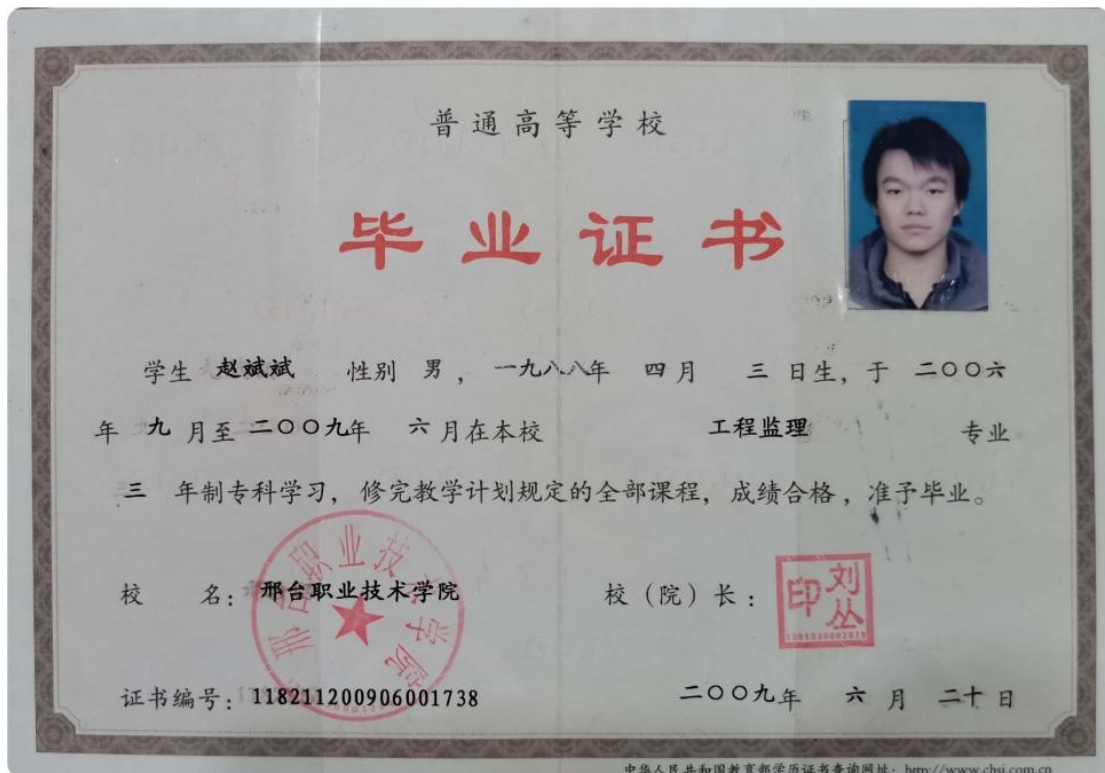 普通高等学校
毕业证书
学生 赵斌斌 性别 男 ，一九八八年 四月 三日生，于 二〇〇六
年 九 月至 二〇〇九年 六月在本校 工程监理 专业
三 年制专科学习，修完教学计划规定的全部课程，成绩合格，准予毕业。
邢台职业技术学院
校 名：邢台职业技术学院 校（院）长：
刘丛印
证书编号：118211200906001738 二〇〇九年 六月 二十日
中华人民共和国教育部学历证书查询网址：http://www.chsi.com.cn